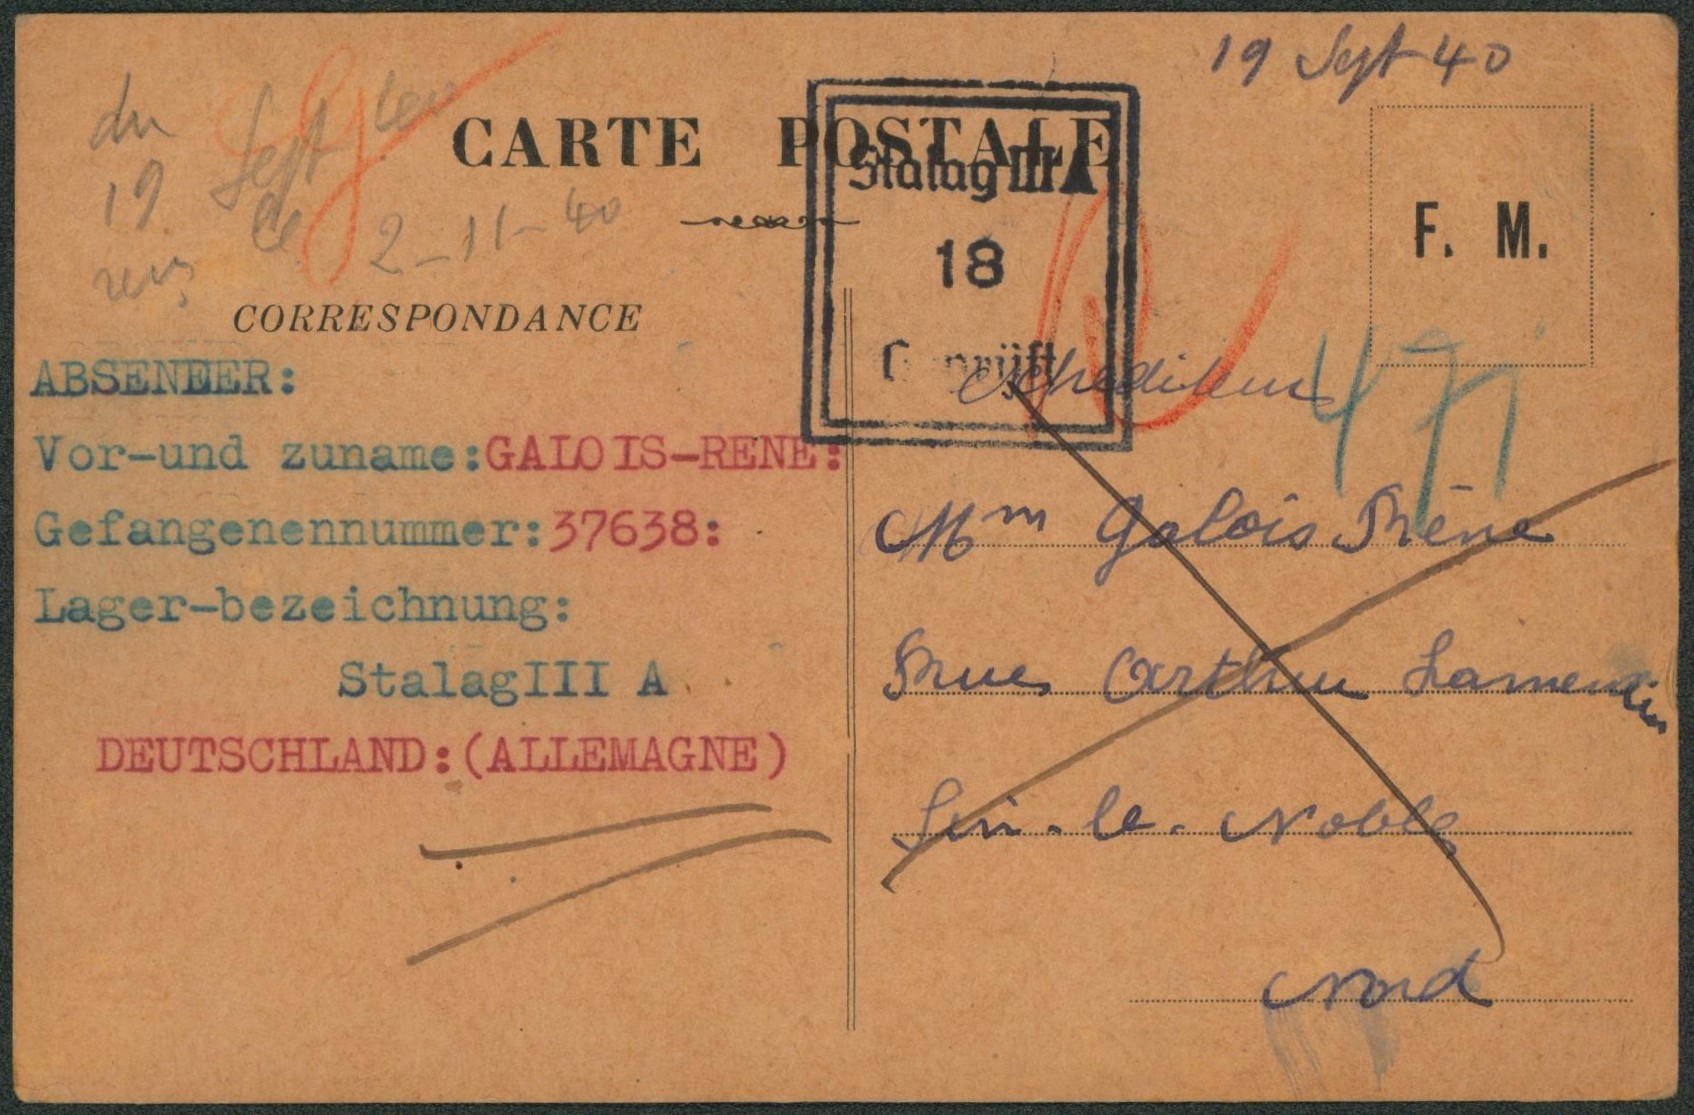 19 Sept 40
du
19 Sept
CARTE POSTALE
Stalag III A
ce 2-11-40
18
F. M.
CORRESPONDANCE
Geprüft
ABSENEER:
Expéditeur
471
Vor-und zuname:GALOIS-RENE:
Gefangenennummer:37638:
Mm Galois Rène
Lager-bezeichnung:
StalagIII A
Rue Arthur Lamendin
DEUTSCHLAND:(ALLEMAGNE)
Sin-le-Noble
Nord